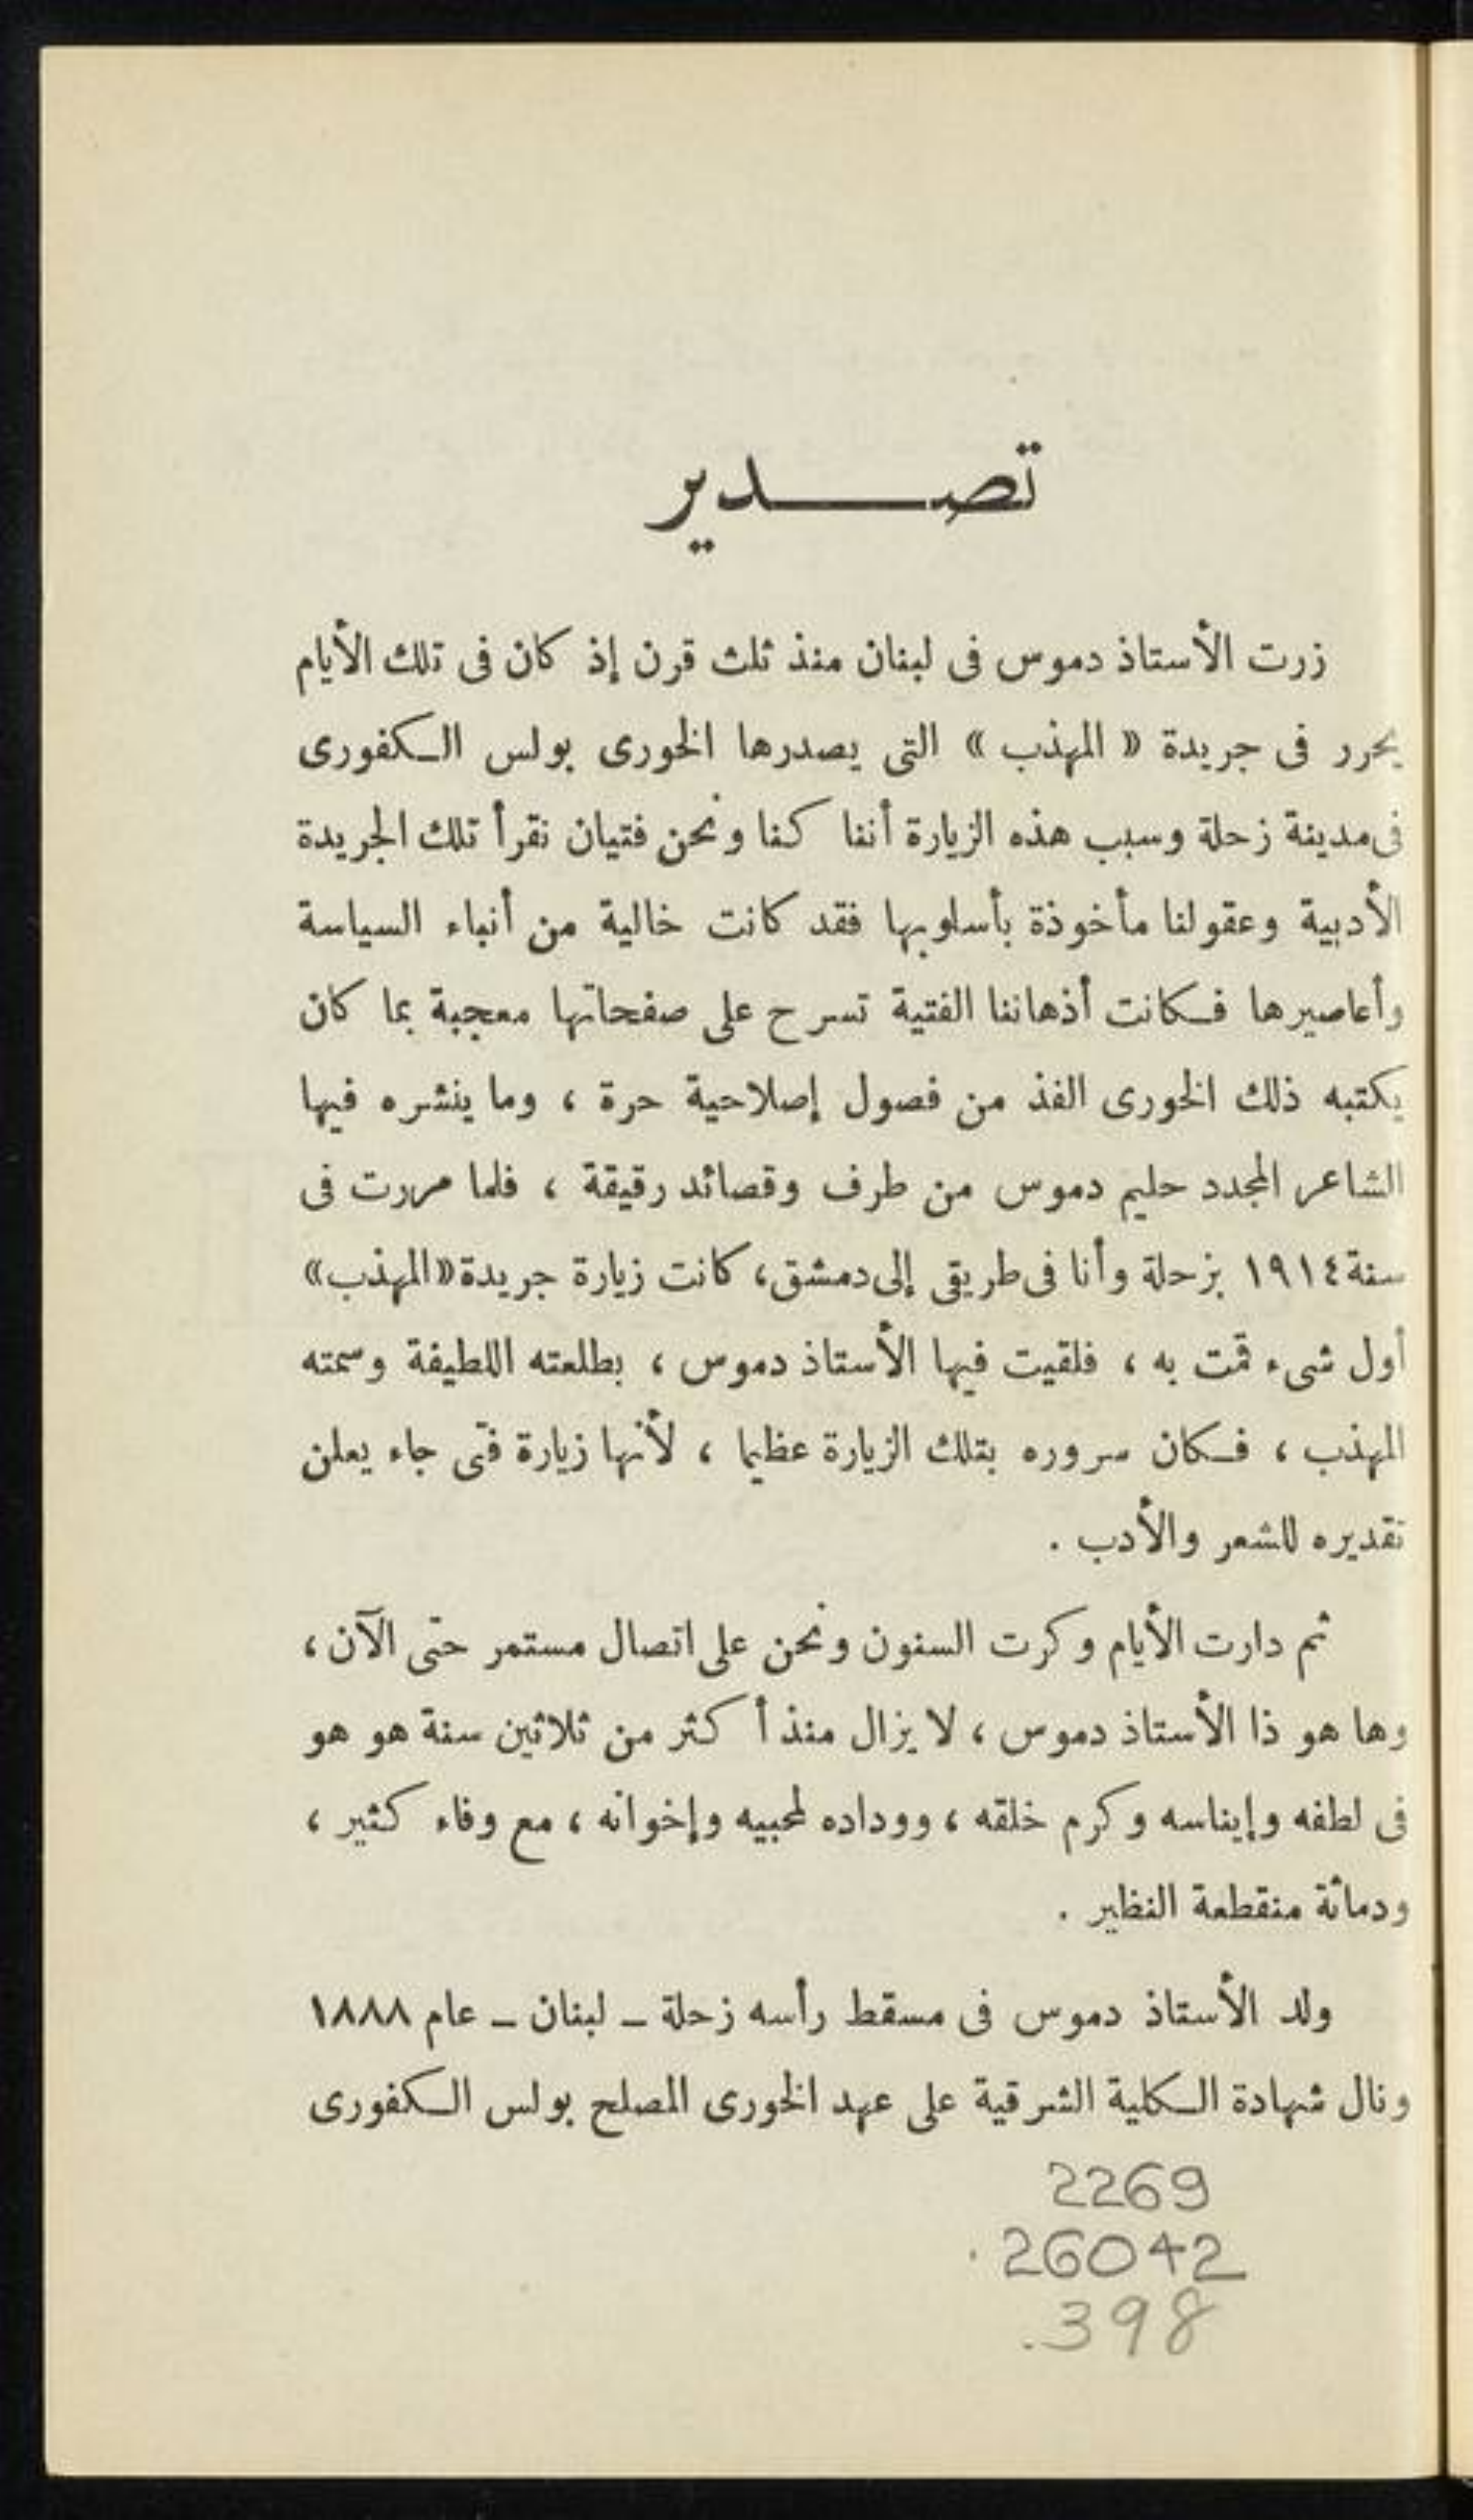 تصـــدير
زرت الأستاذ دموس فى لبنان منذ ثلث قرن إذ كان فى تلك الأيام
يحرر فى جريدة « المهذب » التى يصدرها الخورى بولس الكفورى
فى مدينة زحلة وسبب هذه الزيارة أننا كنا ونحن فتيان نقرأ تلك الجريدة
الأدبية وعقولنا مأخوذة بأسلوبها فقد كانت خالية من أنباء السياسة
وأعاصيرها فكانت أذهاننا الفتية تسرح على صفحاتها معجبة بما كان
يكتبه ذلك الخورى الفذ من فصول إصلاحية حرة ، وما ينشره فيها
الشاعر المجدد حليم دموس من طرف وقصائد رقيقة ، فلما مررت فى
سنة ١٩١٤ بزحلة وأنا فى طريقى إلى دمشق، كانت زيارة جريدة «المهذب»
أول شىء قمت به ، فلقيت فيها الأستاذ دموس ، بطلعته اللطيفة وسمته
المهذب ، فكان سروره بتلك الزيارة عظيما ، لأنها زيارة فتى جاء يعلن
تقديره للشعر والأدب .
ثم دارت الأيام وكرت السنون ونحن على اتصال مستمر حتى الآن ،
وها هو ذا الأستاذ دموس ، لا يزال منذ أكثر من ثلاثين سنة هو هو
فى لطفه وإيناسه وكرم خلقه ، ووداده لمحبيه وإخوانه ، مع وفاء كثير ،
ودماثة منقطعة النظير .
ولد الأستاذ دموس فى مسقط رأسه زحلة – لبنان – عام ١٨٨٨
ونال شهادة الكلية الشرقية على عهد الخورى المصلح بولس الكفورى
2269
.26042
.398